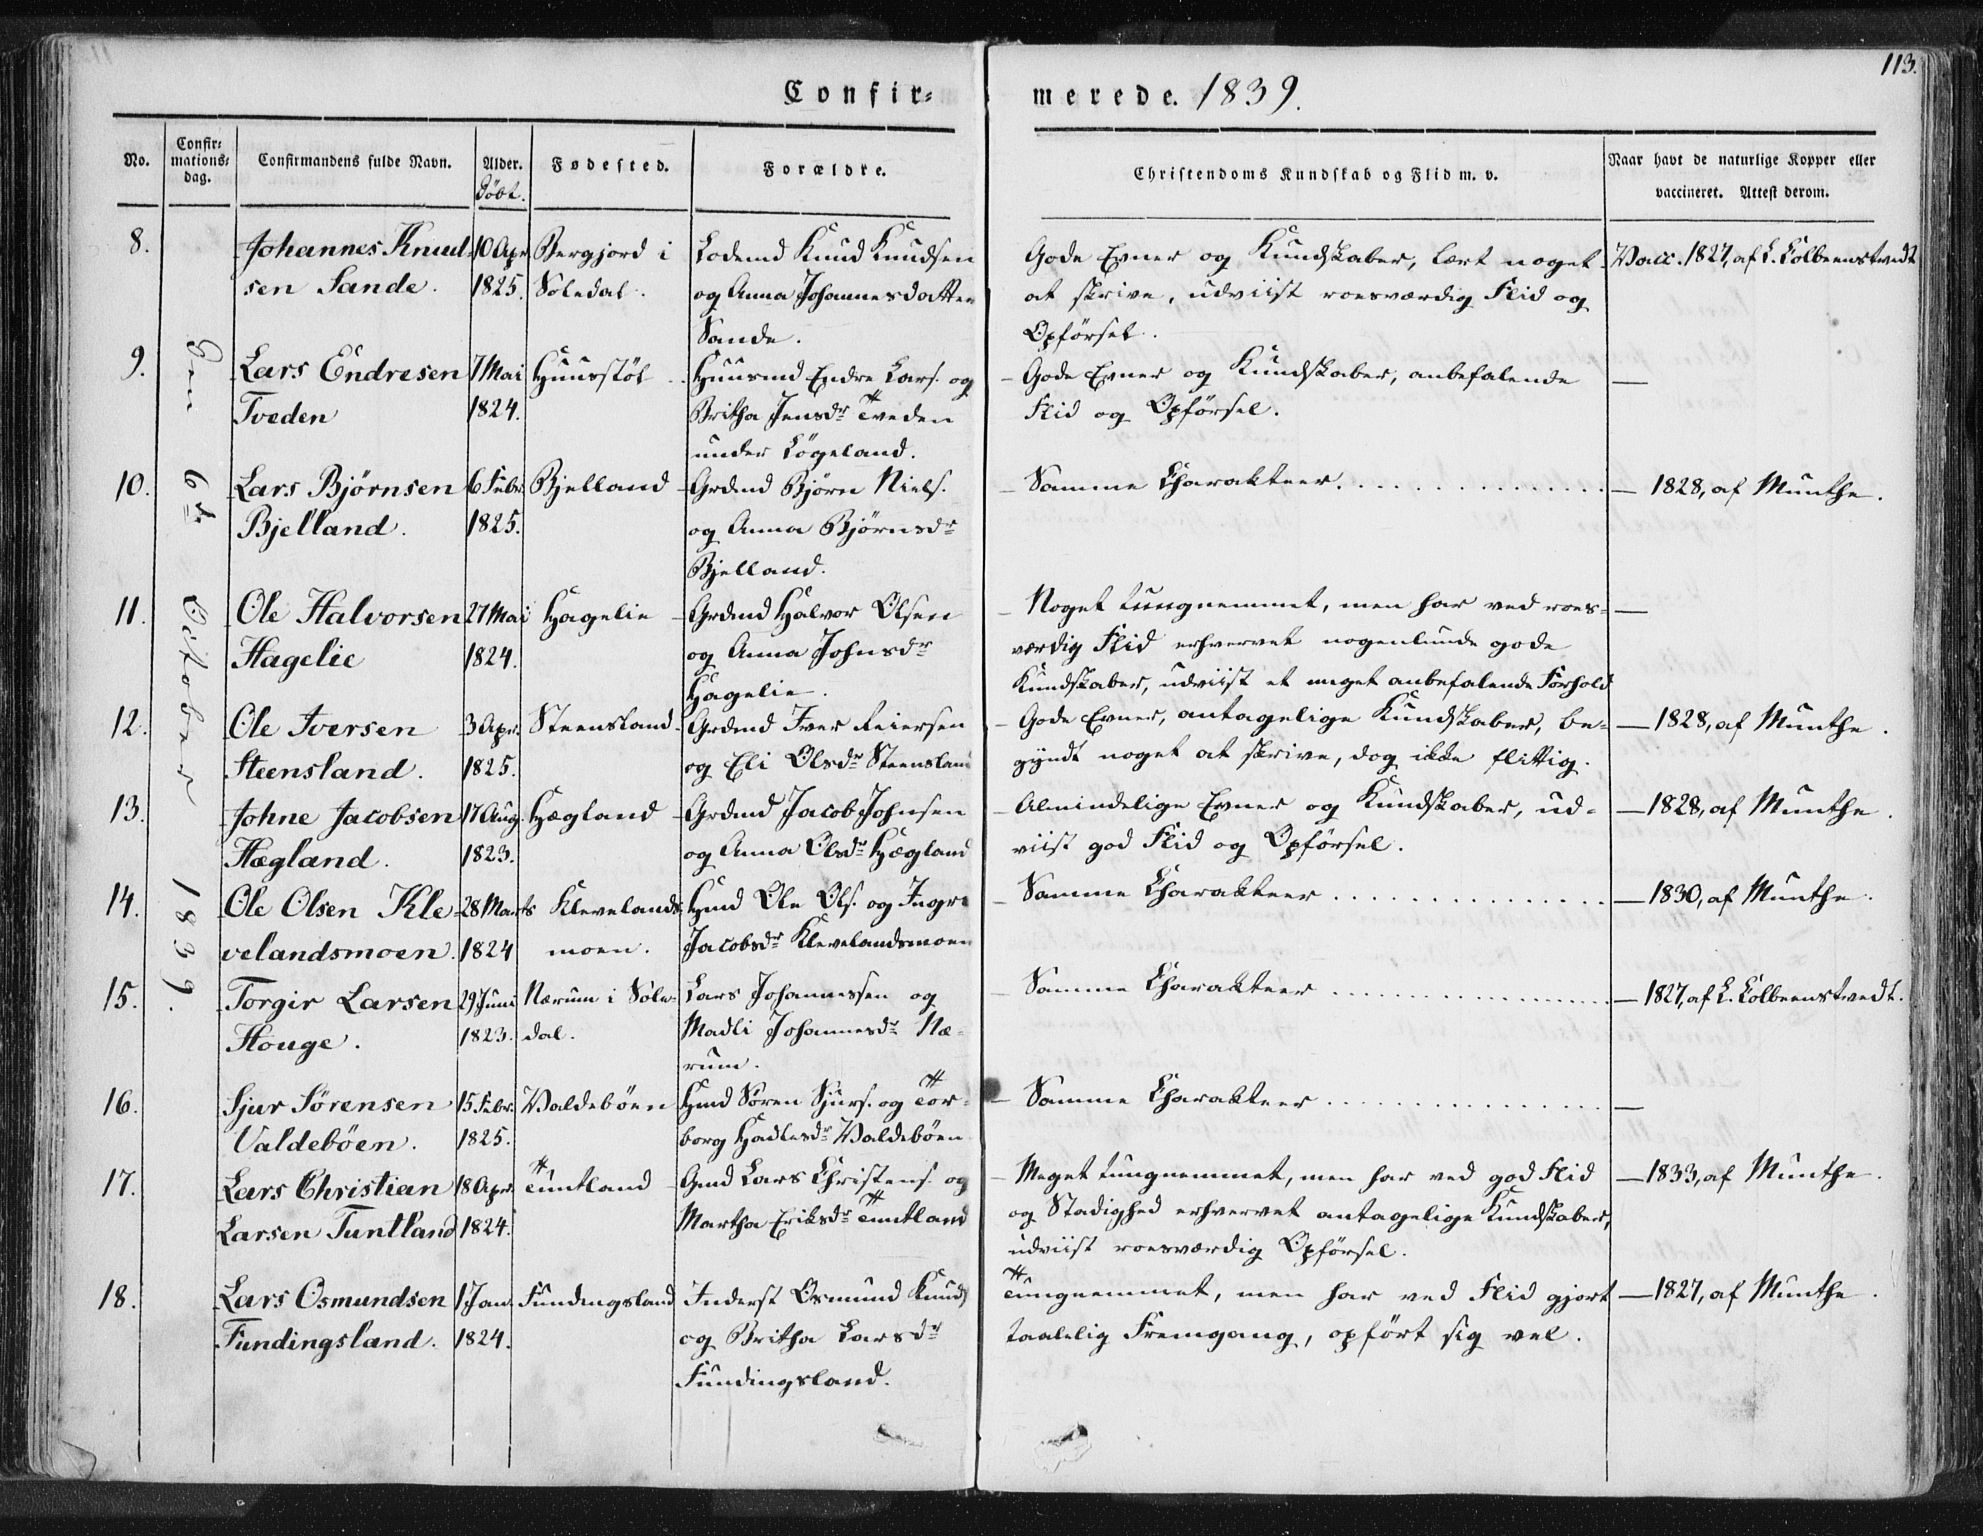 113.
Confir= merede. 1839.
No.
Confir=
mations=
dag.
Confirmandens fulde Navn.
Alder.
Döbt.
Fødested.
Forældre.
Christendoms Kundskab og Flid m. v.
Naar havt de naturlige Kopper eller
vaccineret. Attest derom.
Den 6te October 1839.
8. Johannes Knud- 10 Apr. Bergjord i Lodsmd Knud Knudsen Gode Evner og Kundskaber, lært noget Vacc. 1827, af L. Kolbeenstvedt
sen Sande. 1825. Soledal. og Anna Johannesdatter at skrive, udviist roesværdig Flid og
Sande. Opförsel.
9. Lars Endresen 7 Mai Huusstöl Huusmd Endre Lars. og – Gode Evner og Kundskaber, anbefalende —
Tveden 1824. Britha Jensdr Tveden Flid og Opförsel.
under Lögeland.
10. Lars Bjørnsen 6 Febr. Bjelland – Grdmd Bjørn Niels. – Samme Charakteer. — 1828, af Munthe.
Bjelland. 1825. og Anna Bjørnsdr
Bjelland.
11. Ole Halvorsen 27 Mai Hagelie – Grdmd Halvor Olsen – Noget tungnemmet, men har ved roes= —
Hagelie 1824. og Anna Johnsdr værdig Flid erhvervet nogenlunde gode
Hagelie. Kundskaber, udviist et meget anbefalende Forhold
12. Ole Iversen 3 Apr. Steensland – Grdmd Iver Reiersen – Gode Evner, antagelige Kundskaber, be= — 1828, af Munthe.
Steensland. 1825. og Eli Olsdr Steensland gyndt noget at skrive, dog ikke flittig.
13. Johne Jacobsen 17 Aug. Hægland – Grdmd Jacob Johnsen – Almindelige Evner og Kundskaber, ud= — 1828, af Munthe.
Hægland. 1823. og Anna Olsdr Hægland viist god Flid og Opförsel.
14. Ole Olsen Kle- 28 Marts Klevelands- Hmd Ole Ols. og Ingr. – Samme Charakteer — 1830, af Munthe.
velandsmoen. 1824 moen. Jacobsdr Klevelandsmoen
15. Torgir Larsen 29 Juni Nærum i Söle- Lars Johannessen og – Samme Charakteer — 1827, af L. Kolbeenstvedt.
Houge. 1823. dal. Madli Johannesdr Næ=
rum.
16. Sjur Sörensen 15 Febr. Valdeböen Hmd Sören Sjurs. og Tor= – Samme Charakteer —
Valdeböen. 1825. borg Hadlesdr Valdeböen
17. Lars Christian 18 Apr. Tuntland – Gmd Lars Christens. og – Meget tungnemmet, men har ved god Flid — 1833, af Munthe.
Larsen Tuntland 1824. Martha Eriksdr Tuntland og Stadighed erhvervet antagelige Kundskaber,
udviist roesværdig Opförsel.
18. Lars Osmundsen 1 Jan. Fundingsland Inderst Osmund Knuds. Tungnemmet, men har ved Flid gjort — 1827, af Munthe.
Fundingsland. 1824. og Britha Larsdr taalelig Fremgang, opfört sig vel.
Fundingsland.